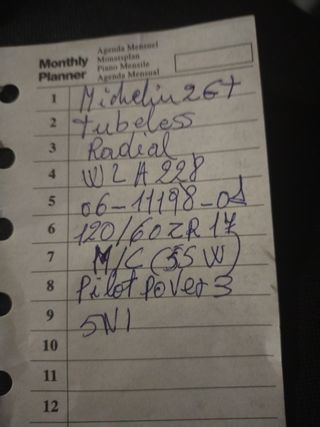 Monthly
Planner
Agenda Mensuel
Monatsplan
Piano Mensile
Agenda Mensual
1 Michelin 2CT
2 tubeless
3 Radial
4 W2 A 228
5 06-11198-01
6 120/60 ZR 17
7 M/C (55 W)
8 Pilot Power 3
9 5N1
10
11
12